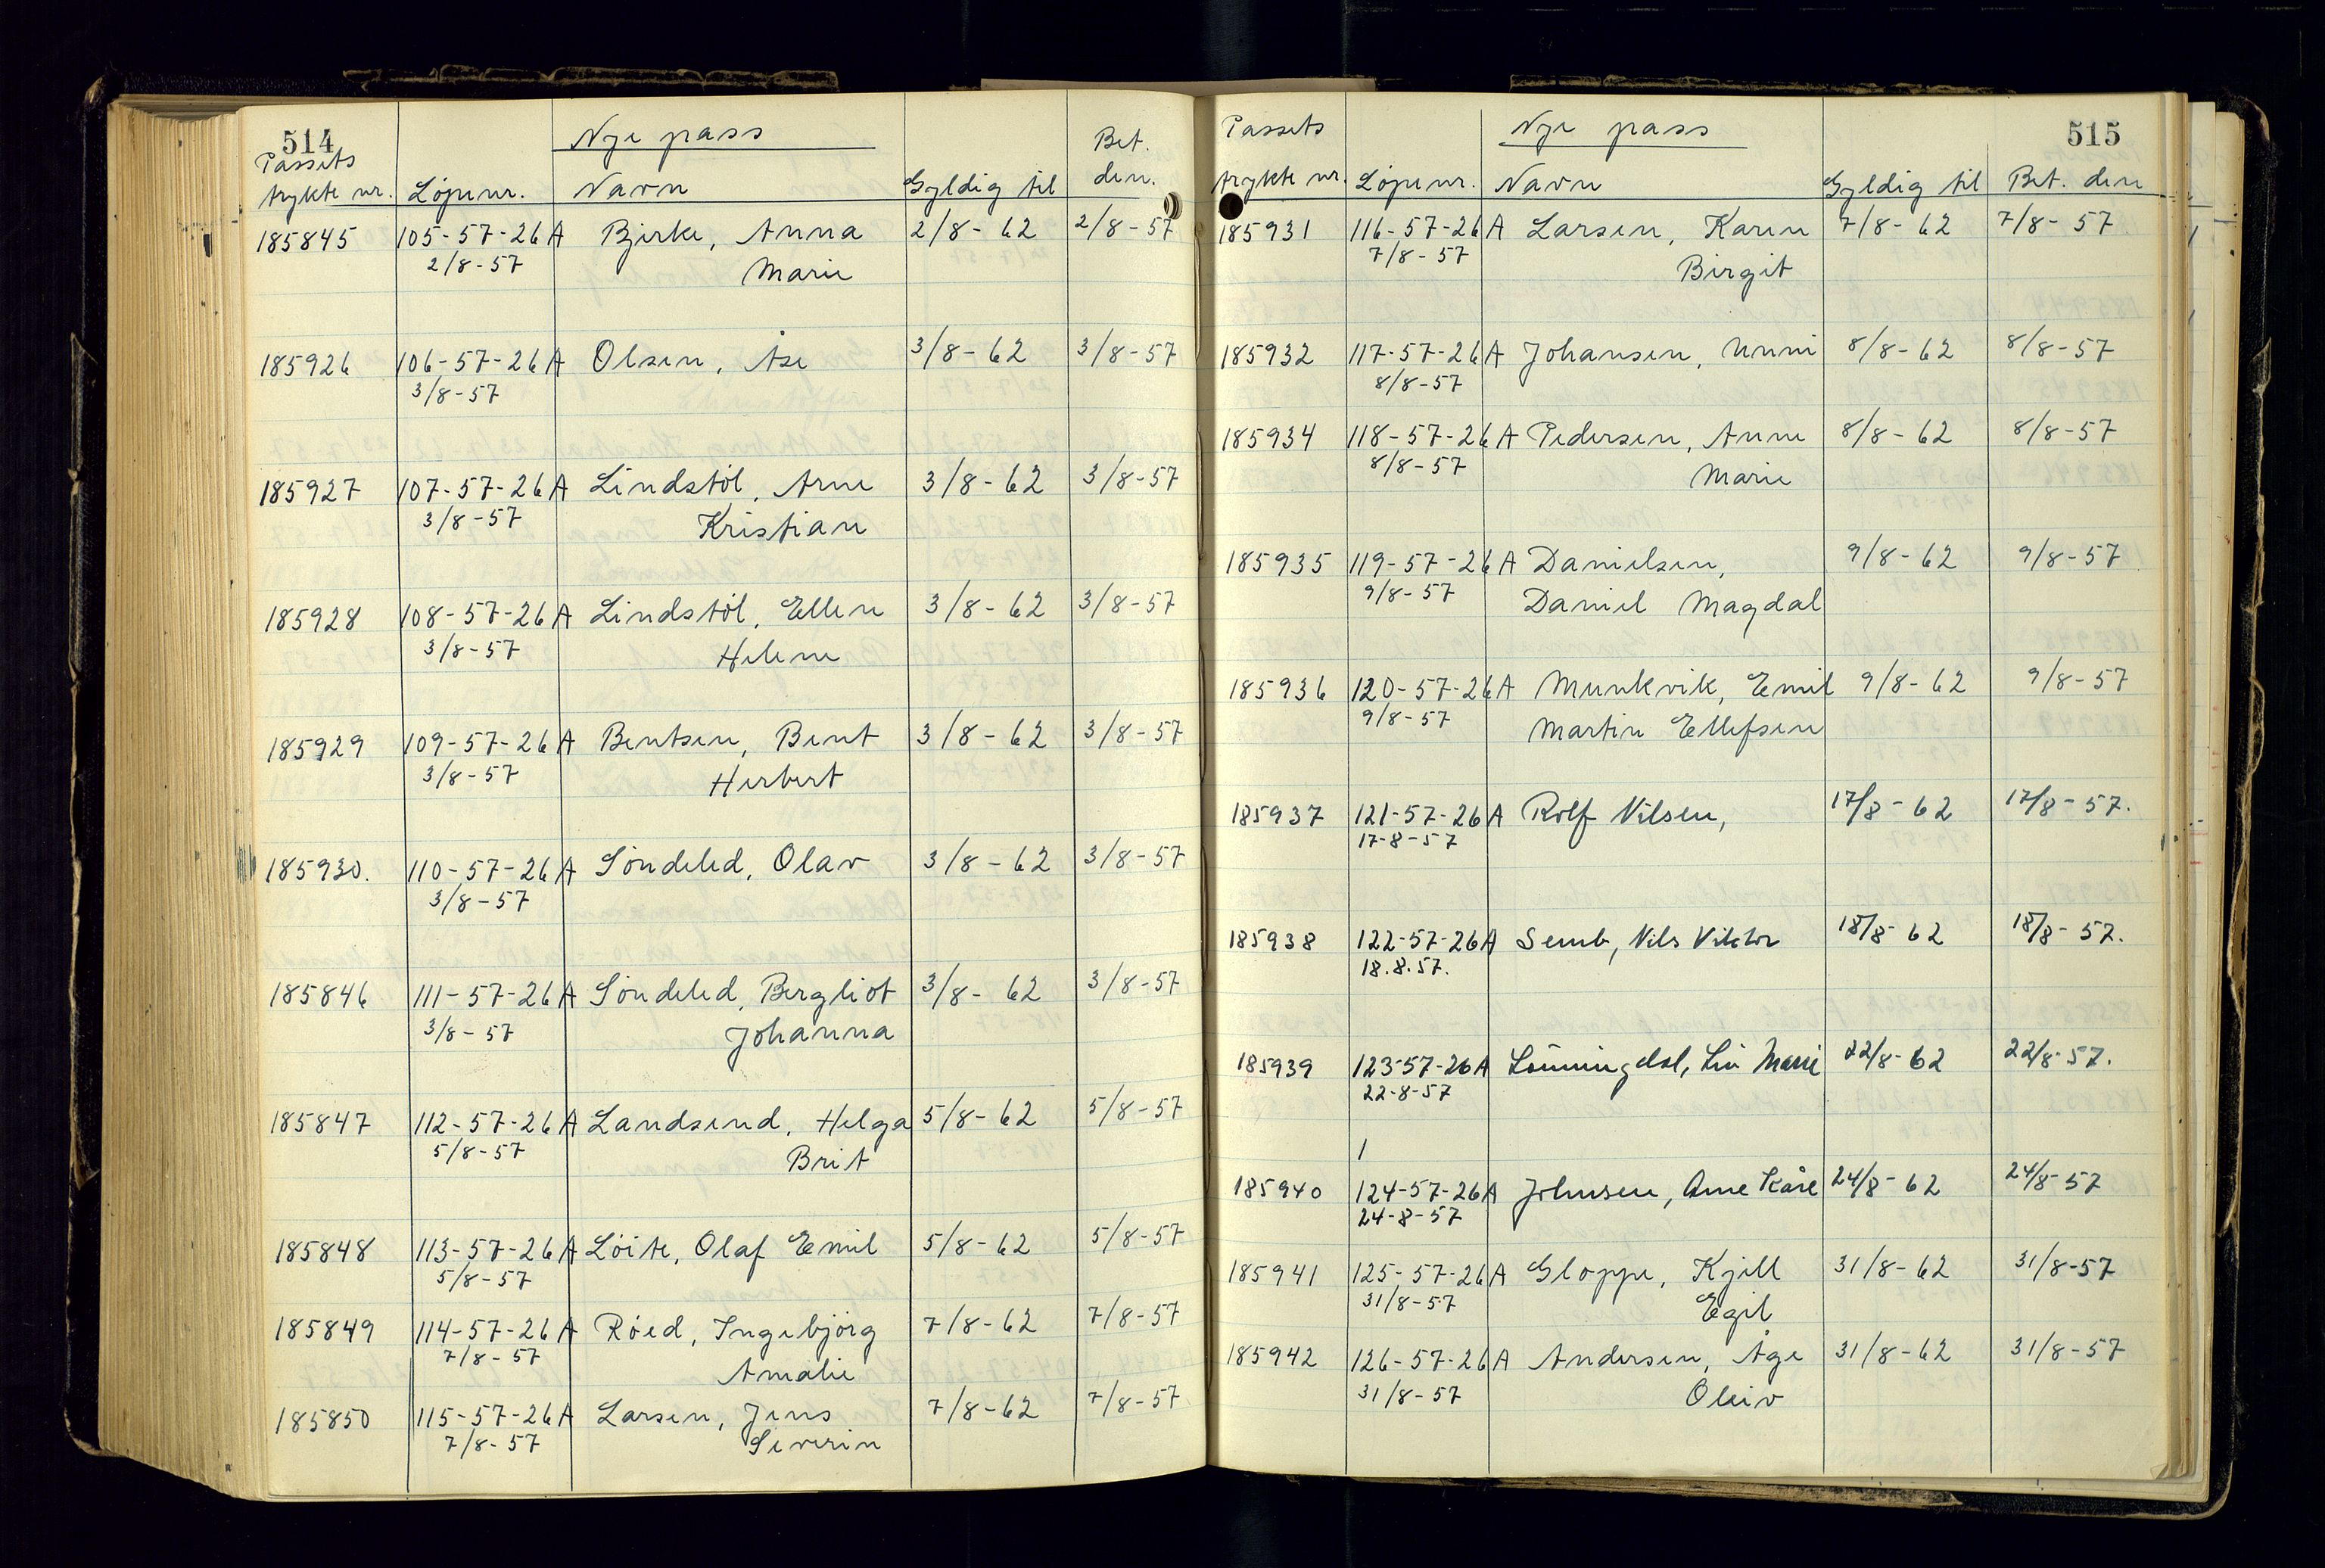 514
Nye pass
Passets
trykte nr. Löpenr. Navn Gyldig til Bet. den.
185845 105-57-26A Bjerke, Anna 2/8-62 2/8-57
2/8-57 Marie
185926 106-57-26A Olsen, Åse 3/8-62 3/8-57
3/8-57
185927 107-57-26A Lindstöl, Arne 3/8-62 3/8-57
3/8-57 Kristian
185928 108-57-26A Lindstöl, Ellen 3/8-62 3/8-57
3/8-57 Helene
185929 109-57-26A Bentsen, Bent 3/8-62 3/8-57
3/8-57 Herbert
185930. 110-57-26A Söndeled, Olav 3/8-62 3/8-57
3/8-57
185846 111-57-26A Söndeled, Bergliot 3/8-62 3/8-57
3/8-57 Johanna
185847 112-57-26A Landsend, Helga 5/8-62 5/8-57
5/8-57 Brit
185848 113-57-26A Löite, Olaf Emil 5/8-62 5/8-57
5/8-57
185849 114-57-26A Röed, Ingebjörg 7/8-62 7/8-57
7/8-57 Amalie
185850 115-57-26A Larsen, Jens 7/8-62 7/8-57
7/8-57 Severin
515
Passets Nye pass
trykte nr. Löpenr. Navn Gyldig til Bet. den
185931 116-57-26A Larsen, Karen 7/8-62 7/8-57
7/8-57 Birgit
185932 117-57-26A Johansen, Unni 8/8-62 8/8-57
8/8-57
185934 118-57-26A Pedersen, Anne 8/8-62 8/8-57
8/8-57 Marie
185935 119-57-26A Danielsen, 9/8-62 9/8-57
9/8-57 Daniel Magdal
185936 120-57-26A Munkvik, Emil 9/8-62 9/8-57
9/8-57 Martin Ellefsen
185937 121-57-26A Rolf Nilsen, 17/8-62 17/8-57.
17-8-57
185938 122-57-26A Semb, Nils Viktor 18/8-62 18/8-57.
18.8.57.
185939 123-57-26A Lönningdal, Liv Marie 22/8-62 22/8-57.
22-8-57
185940 124-57-26A Johnsen, Arne Kåre 24/8-62 24/8-57
24-8-57
185941 125-57-26A Gloppe, Kjell 31/8-62 31/8-57
31/8-57 Egil
185942 126-57-26A Andersen, Åge 31/8-62 31/8-57
31/8-57 Oleiv